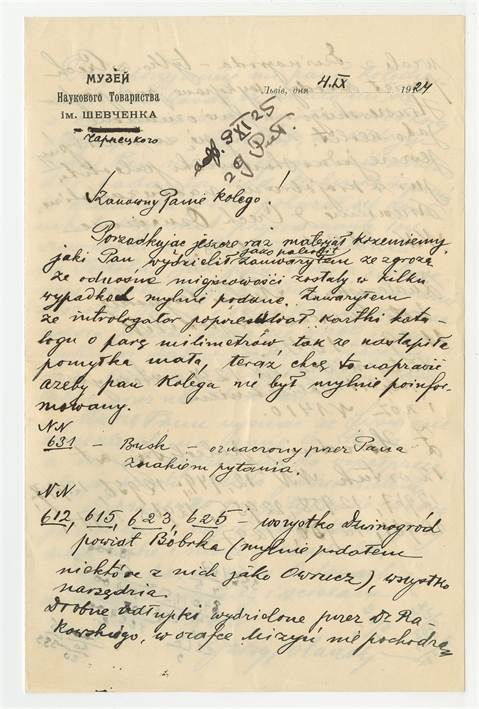 МУЗЕЙ
Наукового Товариства
ім. ШЕВЧЕНКА
Чарнецкого
Львів, дня 4.IX 1924
odp. 9 XI 25
Szanowny Panie Kolego!
Porządkując jeszcze raz materjał krzemienny,
jaki Pan wydzielił jako należy zauważyłem ze zgrozą
że odnośne miejscowości zostały w kilku
wypadkach mylnie podane. Zauważyłem
że introligator kartki kata-
logu o parę milimetrów tak że nastąpiła
pomyłka mała, teraz chcę to naprawić
ażeby pan Kolega nie był mylnie poinfor-
mowany.
NN
631 – Busk – oznaczony przez Pana
znakiem pytania.
NN
612, 615, 623, 625 – wszystko Dzwinogród
powiat Bóbrka (mylnie podałem
niektóre z nich jako Owrucz), wszystko
narzędzia.
Drobne odłupki wydzielone przez Dr Ra-
kowskiego, w ogóle Mizyń nie pochodzą